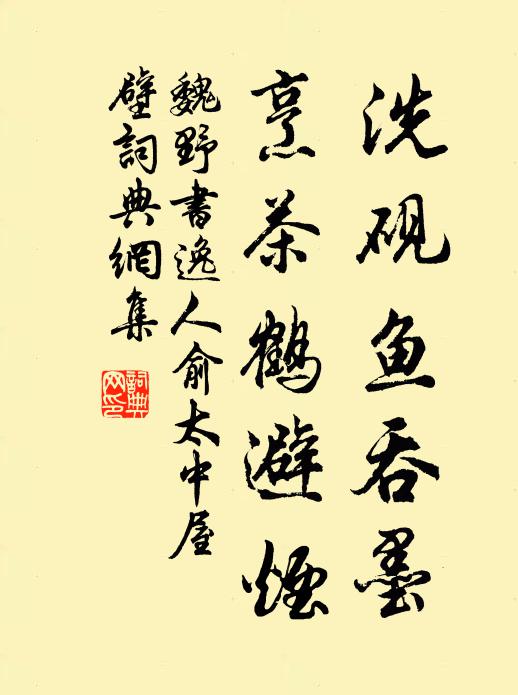 洗砚鱼吞墨
烹茶鹤避煙
魏野書逸人俞太中屋
壁詞典網集
詞典
网印